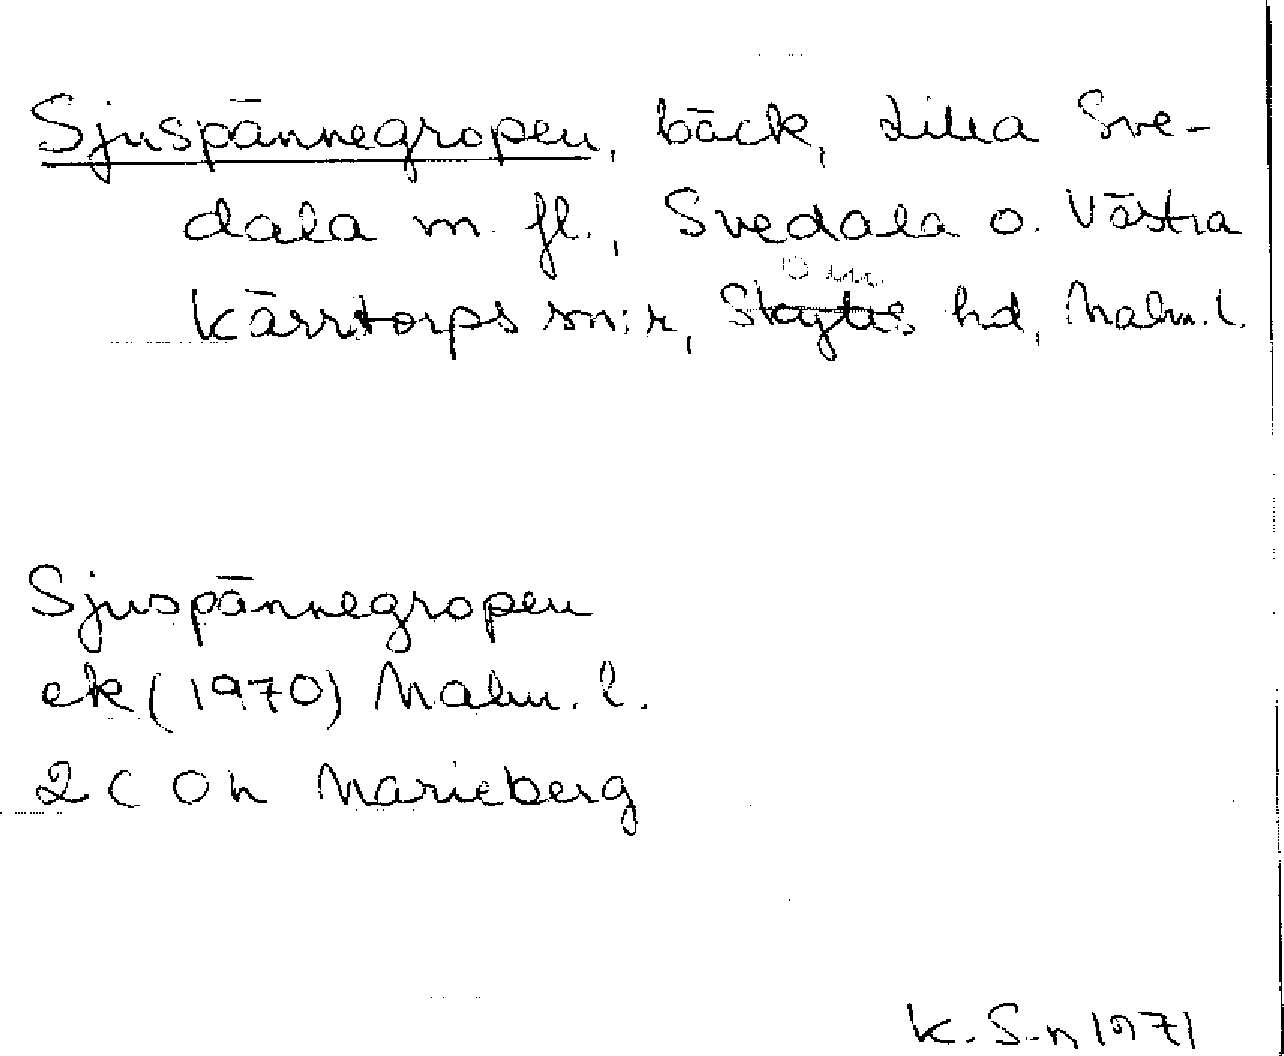 Sjuspännegropen, bäck, Lilla Sve-
dala m. fl., Svedala o. Västra
Kärrtorps sn:r, Skytts hd, Malm. l.
Sjuspännegropen
ek (1970) Malm. l.
2 C 0 h Marieberg
K. S-n 1971